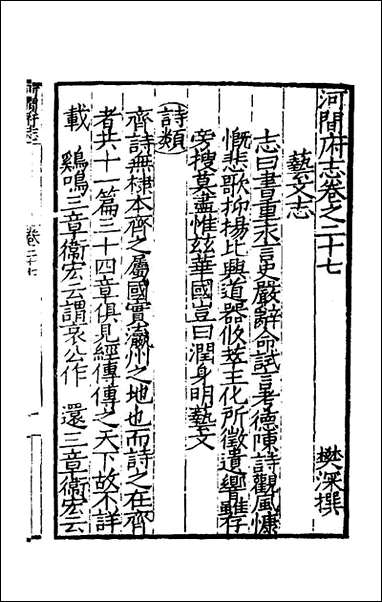 河間府志卷之二十七
樊深撰
藝文志
志曰書重求言史嚴辭命試言考德陳詩觀風慷
慨悲歌抑揚比興道器攸萃王化所徵遺響雖存
旁搜莫盡惟茲華國豈曰潤身明藝文
詩類
齊詩無棣本齊之屬國實瀛州之地也而詩之在齊
者共十一篇三十四章俱見經傳傳之天下故不詳
載 鷄鳴三章衛宏云謂哀公作 還三章衛宏云
河間府志
卷二十七
一